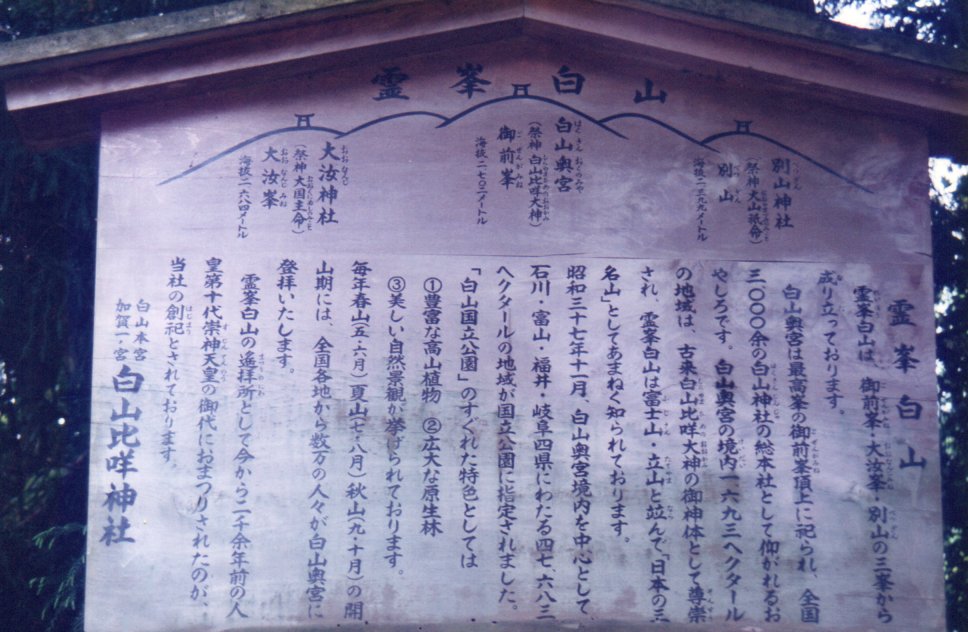 霊峯白山
別山神社
(祭神大山祇命)
別山
海抜二三九九メートル
白山奥宮
(祭神白山比咩大神)
御前峯
海抜二七〇二メートル
大汝神社
(祭神大国主命)
大汝峯
海抜二六八四メートル
霊峯白山
霊峯白山は、御前峯・大汝峯・別山の三峯から
成り立っております。
白山奥宮は最高峯の御前峯頂上に祀られ、全国
三〇〇〇余の白山神社の総本社として仰がれるお
やしろです。白山奥宮の境内一六九三ヘクタール
の地域は、古来白山比咩大神の御神体として尊崇
され、霊峯白山は富士山・立山と並んで「日本の三
名山」としてあまねく知られております。
昭和三十七年十一月、白山奥宮境内を中心として
石川・富山・福井・岐阜四県にわたる四七、六八三
ヘクタールの地域が国立公園に指定されました。
「白山国立公園」のすぐれた特色としては
①豊富な高山植物 ②広大な原生林
③美しい自然景観が挙げられております。
毎年春山(五・六月)夏山(七・八月)秋山(九・十月)の開
山期には、全国各地から数万の人々が白山奥宮に
登拝いたします。
霊峯白山の遙拝所として今から二千余年前の人
皇第十代崇神天皇の御代におまつりされたのが、
当社の創祀とされております。
白山本宮
加賀一ノ宮
白山比咩神社